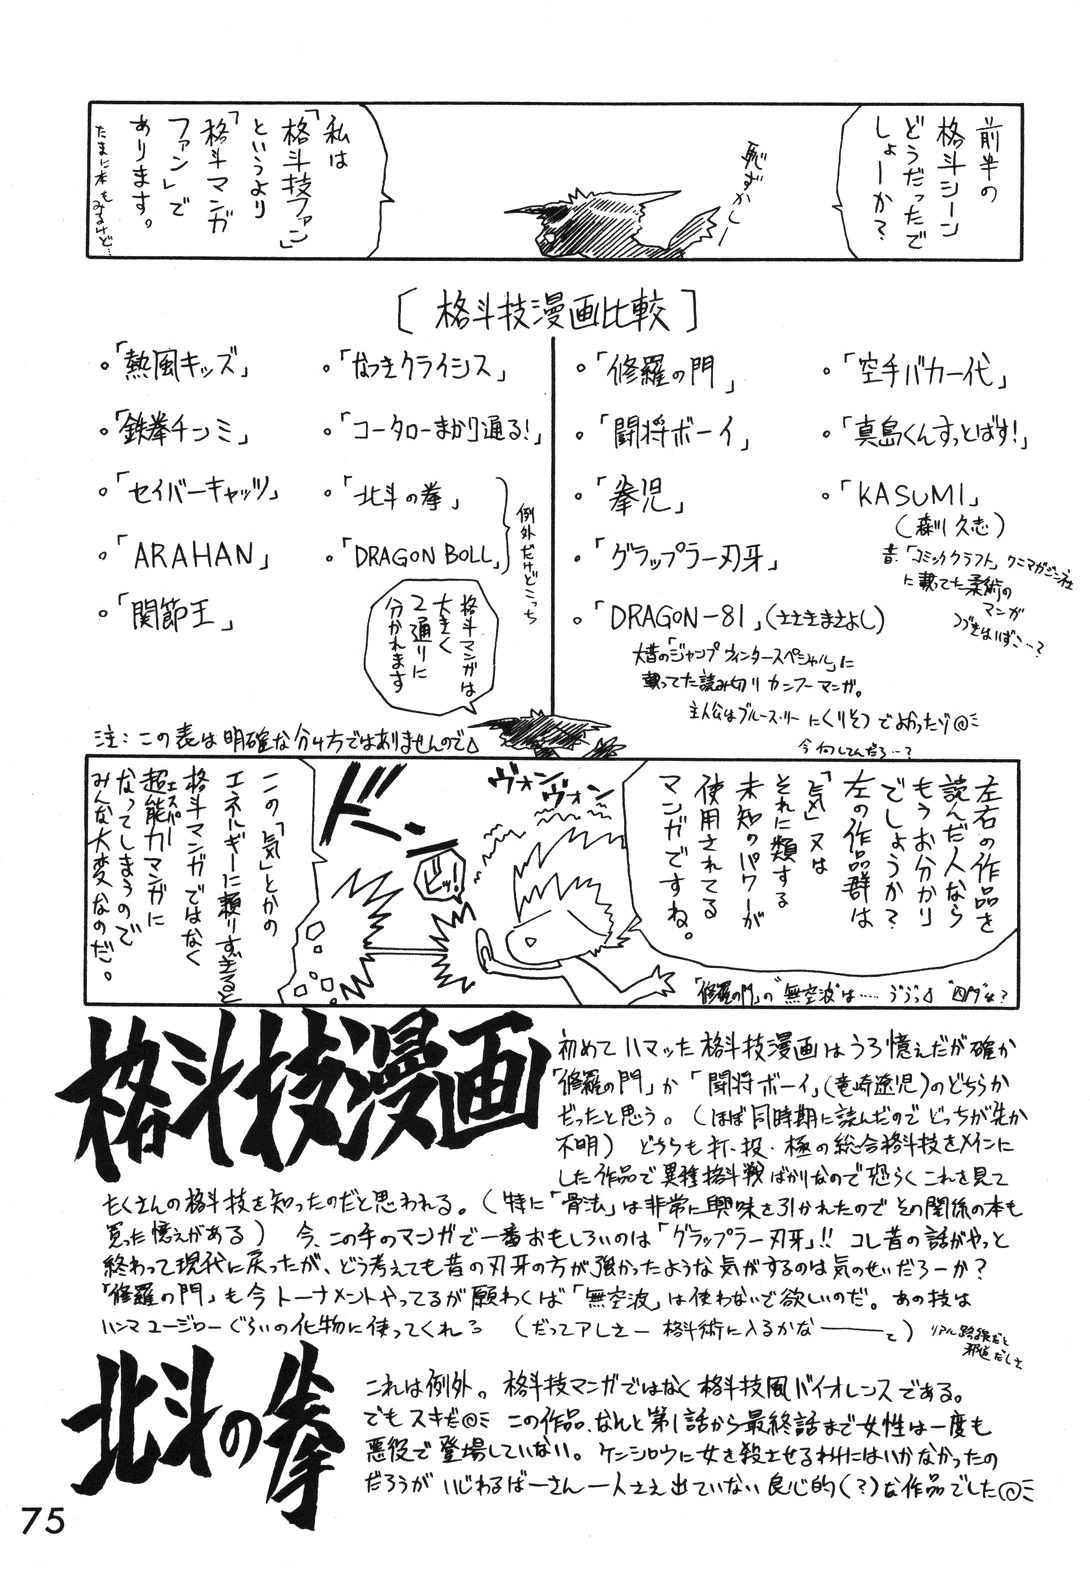 前半の
格斗シーン
どうだったで
しょーか?
恥ずかしー
私は
「格斗技ファン」
というより
「格斗マンガ
ファン」で
あります。
たまに本もみるけど…
[格斗技漫画比較]
。「熱風キッズ」
。「鉄拳チンミ」
。「セイバーキャッツ」
。「ARAHAN」
。「関節王」
。「なつきクライシス」
。「コータローまかり通る!」
。「北斗の拳」
。「DRAGON BOLL」
例外だけどこっち
。「修羅の門」
。「闘将ボーイ」
。「拳児」
。「グラップラー刃牙」
。「DRAGON-81」(ささきまさよし)
大昔の「ジャンプウィンタースペシャル」に
載ってた読み切りカンフーマンガ。
主人公はブルース・リーにくりそつでよかったゾ@ミ
今何してんだろ…?
。「空手バカ一代」
。「真島くんすっとばす!」
。「KASUMI」
(森川久志)
昔「コミッククラフト」クニマガジン社
に載ってた柔術の
マンガ
つづきはいずこ…?
格斗マンガは
大きく
2通りに
分かれます
注:この表は明確な分け方ではありませんので
左右の作品を
読んだ人なら
もうお分かり
でしょうか?
左の作品群は
「気」又は
それに類する
未知のパワーが
使用されてる
マンガですね。
「修羅の門」の“無空波”は……
ヴォン
ヴォン
ドン
ビッ!
この「気」とかの
エネルギーに頼りすぎると
格斗マンガではなく
超能力マンガに
エスパー
なってしまうので
みんな大変なのだ。
格斗技漫画
初めてハマッた格斗技漫画はうろ憶えだが確か
「修羅の門」か「闘将ボーイ」(竜崎遼児)のどちらか
だったと思う。(ほぼ同時期に読んだのでどっちが先か
不明)どちらも打・投・極の総合格斗技をメインに
した作品で異種格斗戦ばかりなので恐らくこれを見て
たくさんの格斗技を知ったのだと思われる。(特に「骨法」は非常に興味を引かれたのでその関係の本も
買った憶えがある)今、この手のマンガで一番おもしろいのは「グラップラー刃牙」!!コレ昔の話がやっと
終わって現代に戻ったが、どう考えても昔の刃牙の方が強かったような気がするのは気のせいだろーか?
「修羅の門」も今トーナメントやってるが願わくば「無空波」は使わないで欲しいのだ。あの技は
ハンマユージローぐらいの化物に使ってくれろ(だってアレさー格斗術に入るかな――と)リアル路線だと
邪道だしさ
北斗の拳
これは例外。格斗技マンガではなく格斗技風バイオレンスである。
でもスキだ@ミ この作品、なんと第1話から最終話まで女性は一度も
悪役で登場していない。ケンシロウに女を殺させるわけにはいかなかったの
だろうがいじわるばーさん一人さえ出ていない良心的(?)な作品でした@ミ
75